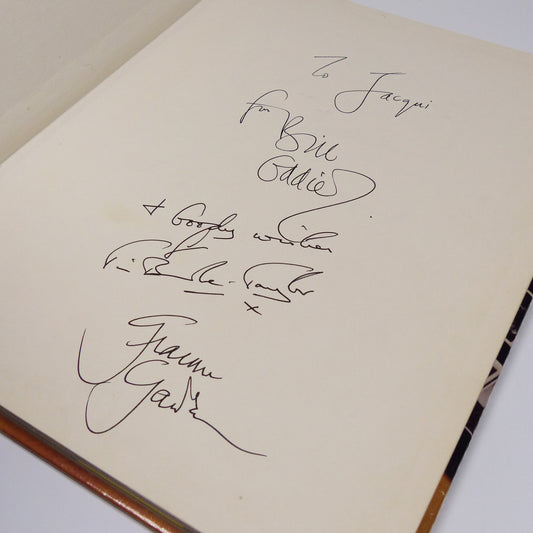 To Jacqui
from Bill
Oddie
+ Goofy wishes
Tim Brooke-Taylor
x
Graeme
Garden